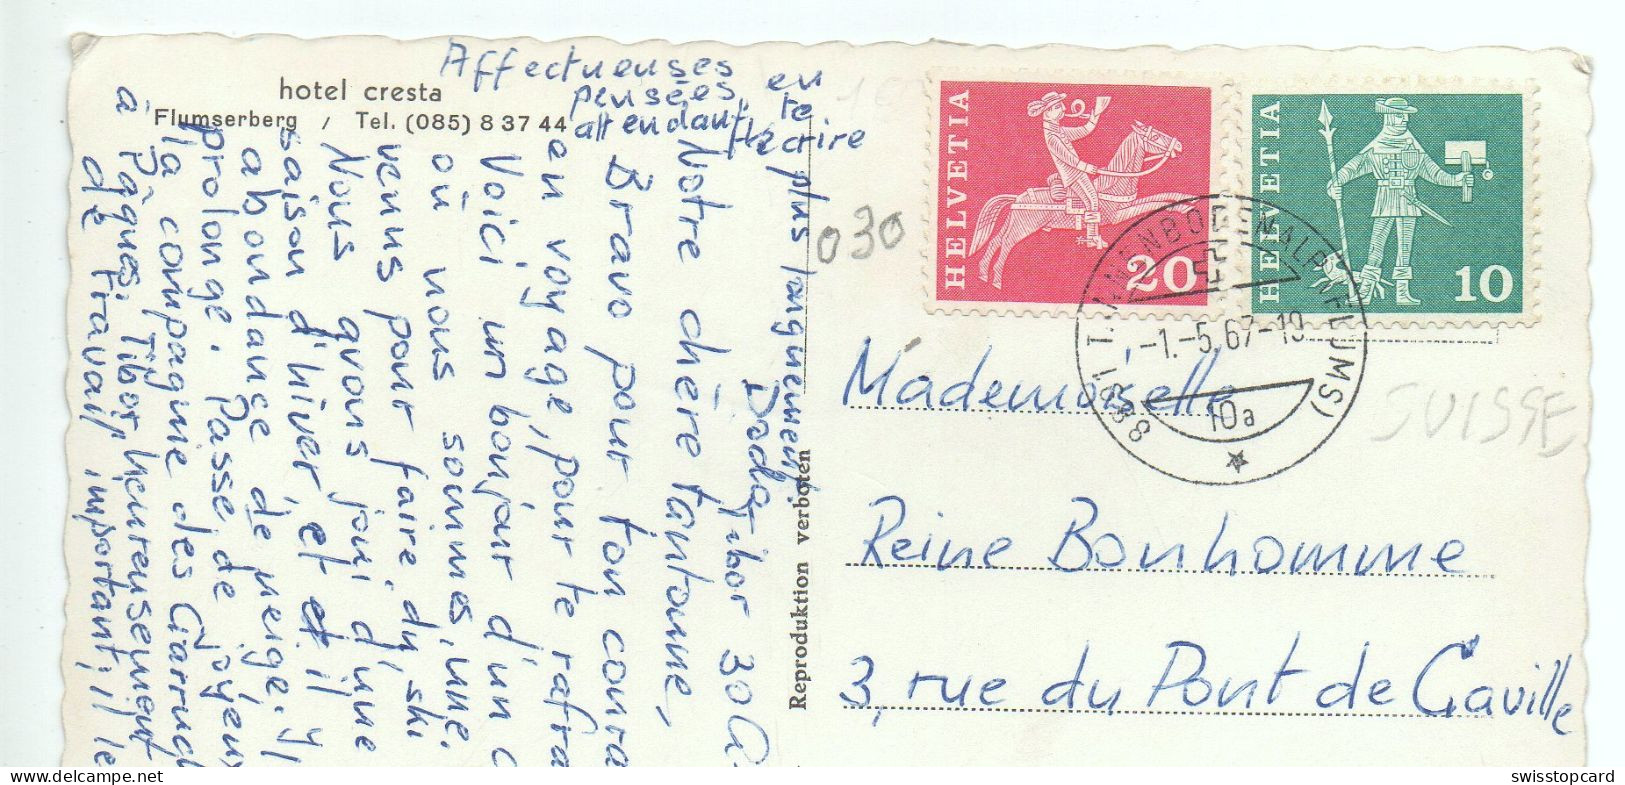 hotel cresta
Flumserberg / Tel. (085) 8 37 44
30 A
Notre chère tantonne,
Bravo pour ton coura
en voyage, pour te rafra
Voici un bonjour d'un c
où nous sommes, une.
venus pour faire du ski
Nous avons joui d'une
saison d'hiver, et il y
abondance de neige.
prolonge. Passe de joyeus
la compagnie des
à Pâques. Tibor heureusement
de travail important, il le
Affectueuses
pensées en
attendant te
écrire
plus longuement
Reproduktion verboten
030
HELVETIA
20
HELVETIA
10
8891 TANNENBODENALP (FLUMS)
-1.-5.67-10
10a
SUISSE
Mademoiselle
Reine Bonhomme
3, rue du Pont de Caville
delcampe.net
swisstopcard